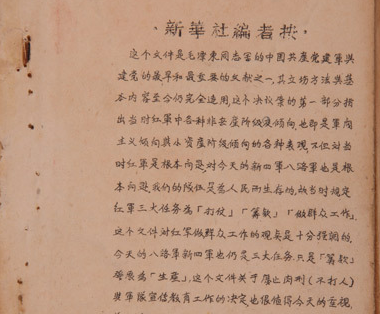 新華社編者按：
这个文件是毛澤東同志写的中国共產党建軍與
建党的最早和最重要的文献之一，其立场方法與基
本内容至今仍完全适用，这个决议案的第一部分指
出当时红軍中各种非無產阶级的傾向，也即是軍阀
主义傾向與小資產阶级傾向的各种表现，不但对当
时红軍是根本问题，对今天的新四軍八路軍也是根
本问题，我们的隊伍是為人民而生存的，故当时規定
红軍三大任务為「打仗」「筹款」「做群众工作」，
这个文件对红軍做群众工作的观點是十分强調的，
今天的八路軍新四軍也仍是三大任务，只是「筹款」
發展為「生產」，这个文件关于廢止肉刑（不打人）
與軍隊宣传教育工作的决定也很值得今天的重視，